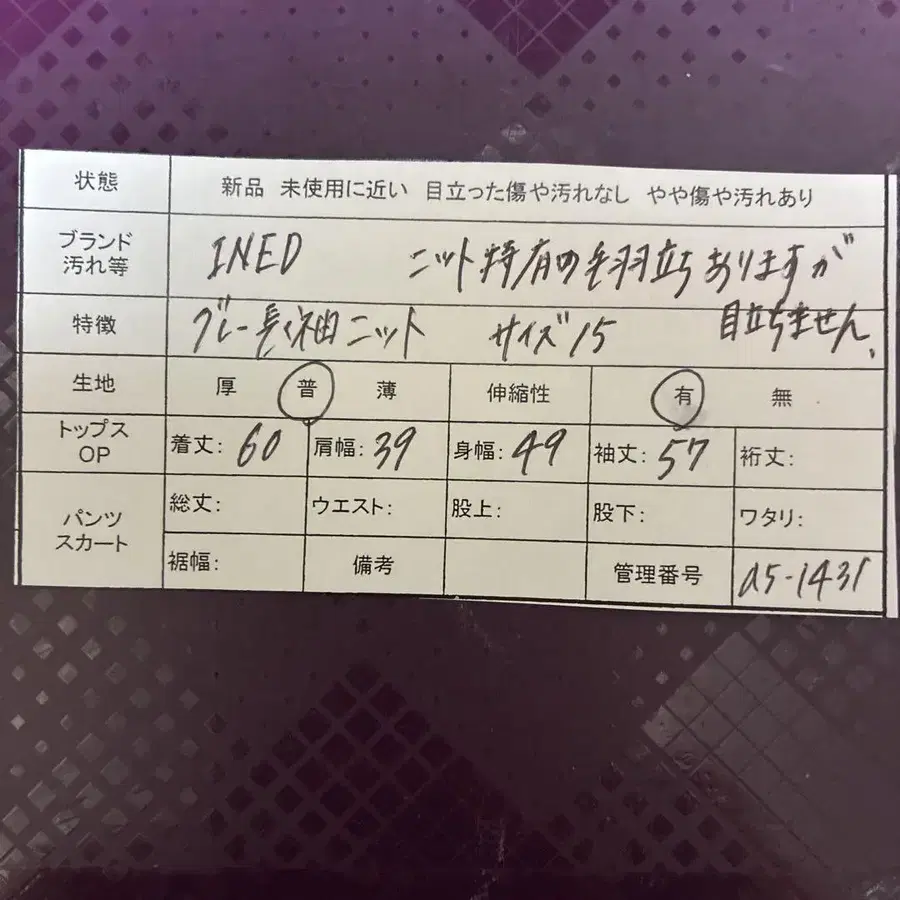 状態 新品 未使用に近い 目立った傷や汚れなし やや傷や汚れあり
ブランド 汚れ等 INED ニット特有の毛羽立ちありますが
目立ちません。
特徴 グレー長袖ニット サイズ15
生地 厚 普 薄 伸縮性 有 無
トップス OP 着丈: 60 肩幅: 39 身幅: 49 袖丈: 57 裄丈:
パンツ スカート 総丈: ウエスト: 股上: 股下: ワタリ:
裾幅: 備考 管理番号 a5-1431